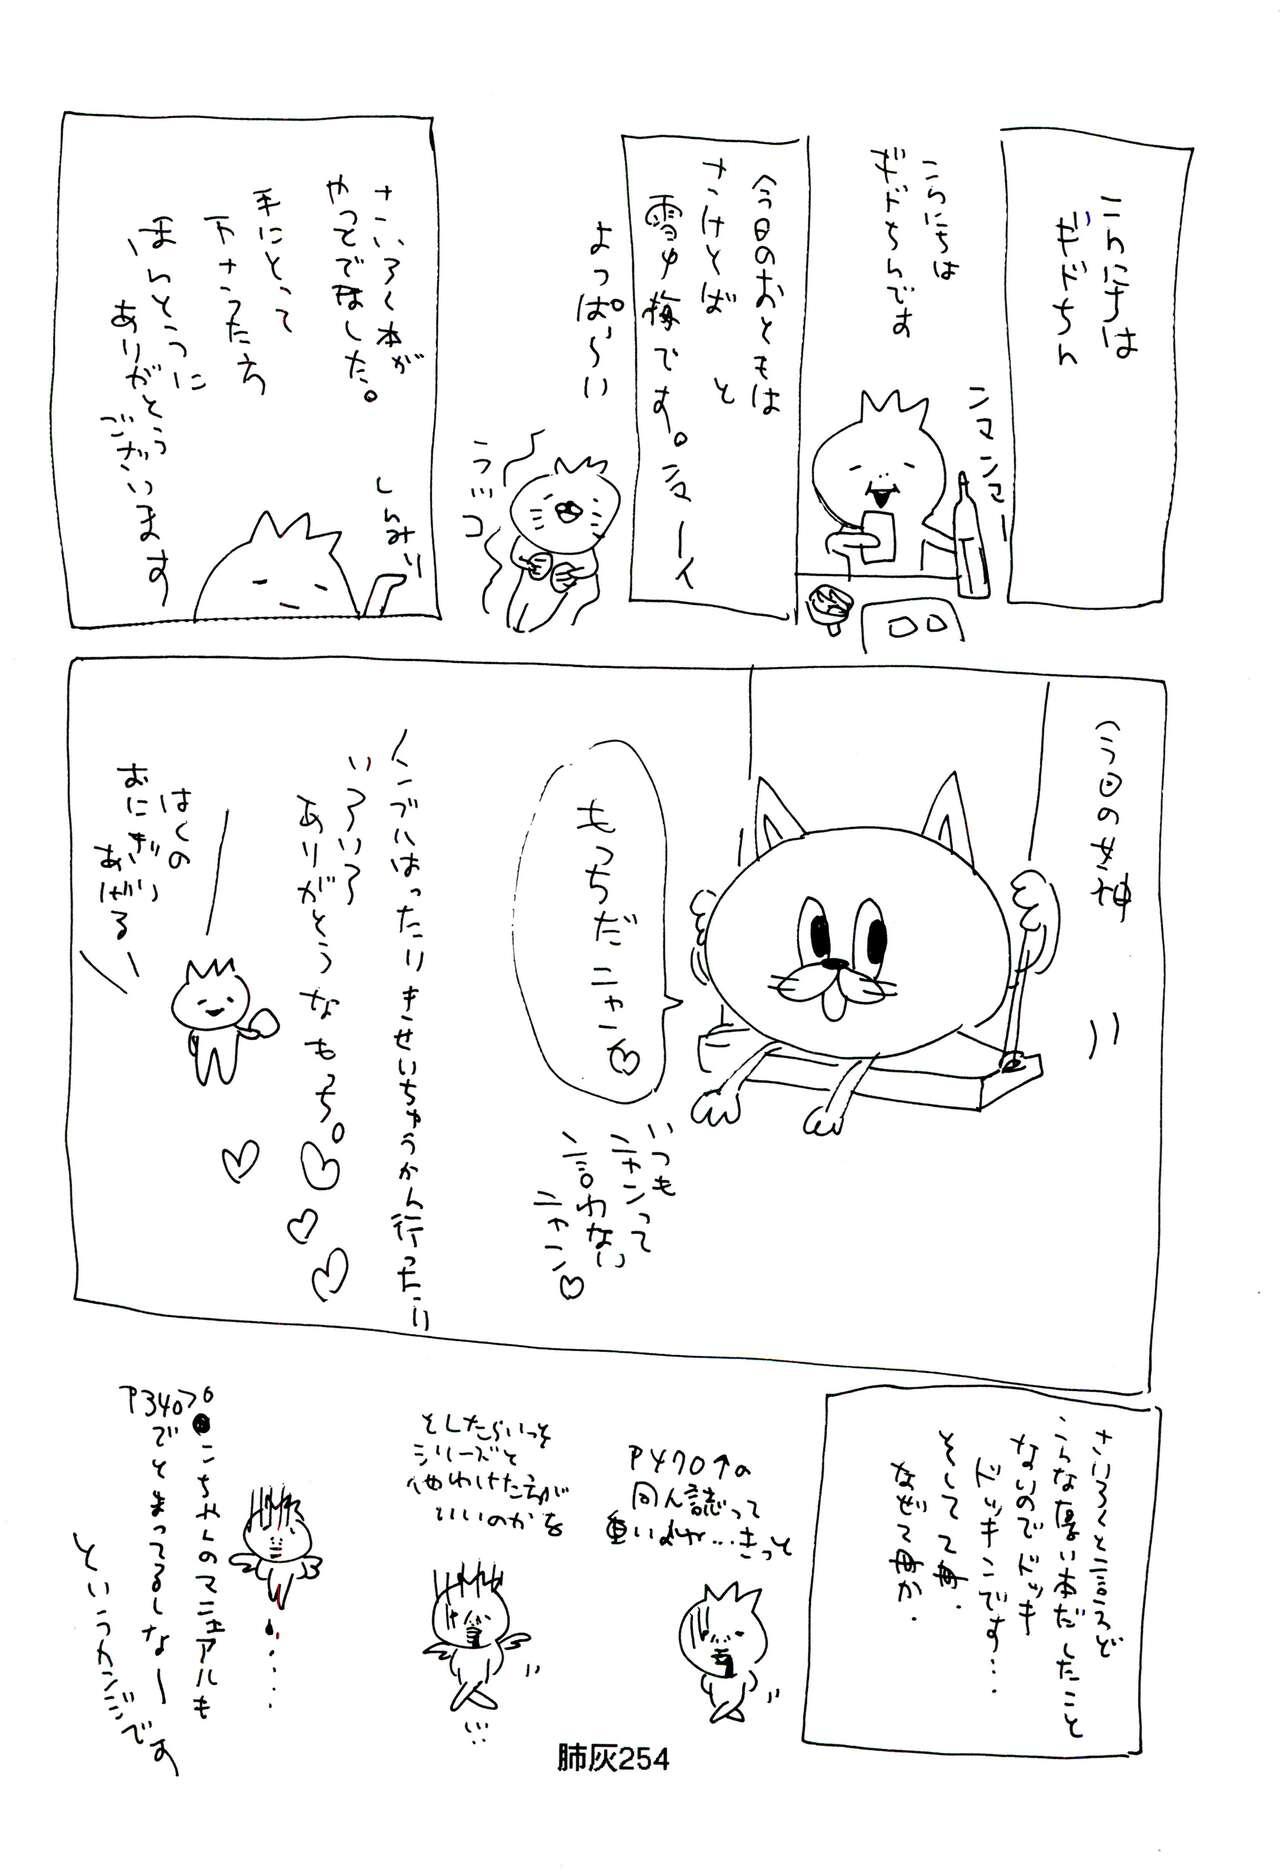 こんにちは
ギドちん
こんにちは
ギドちんです
ンマンマー
今日のおともは
さけとば と
雪中梅です。ンマーイ
よっぱらい
ラッコ
さいろく本が
やってでました。
手にとって
下さった方
ほんとうに
ありがとう
ございます
しんみり
今日の女神
もっちだニャン♡
いつも
ニャンって
言わない
ニャン♡
インフルはったりきせいちゅうかん行ったり
いろいろ
ありがとうなもっち。
はくの
おにぎり
あげる
さいろくと言えど
こんな厚い本だしたこと
ないのでドッキ
ドッキンです…
そして
なぜ
P470↑の
同人誌って
重いよね…きっと
そしたらいっそ
シリーズと
他わけた方が
いいのかな
P340で
こちゃんのマニュアルも
とまってるしなー
というカンジです
肺灰254